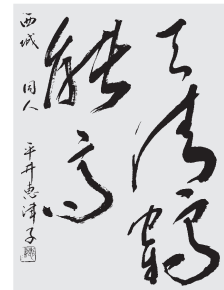 天清鶴
能高
西城 同人 平井惠津子